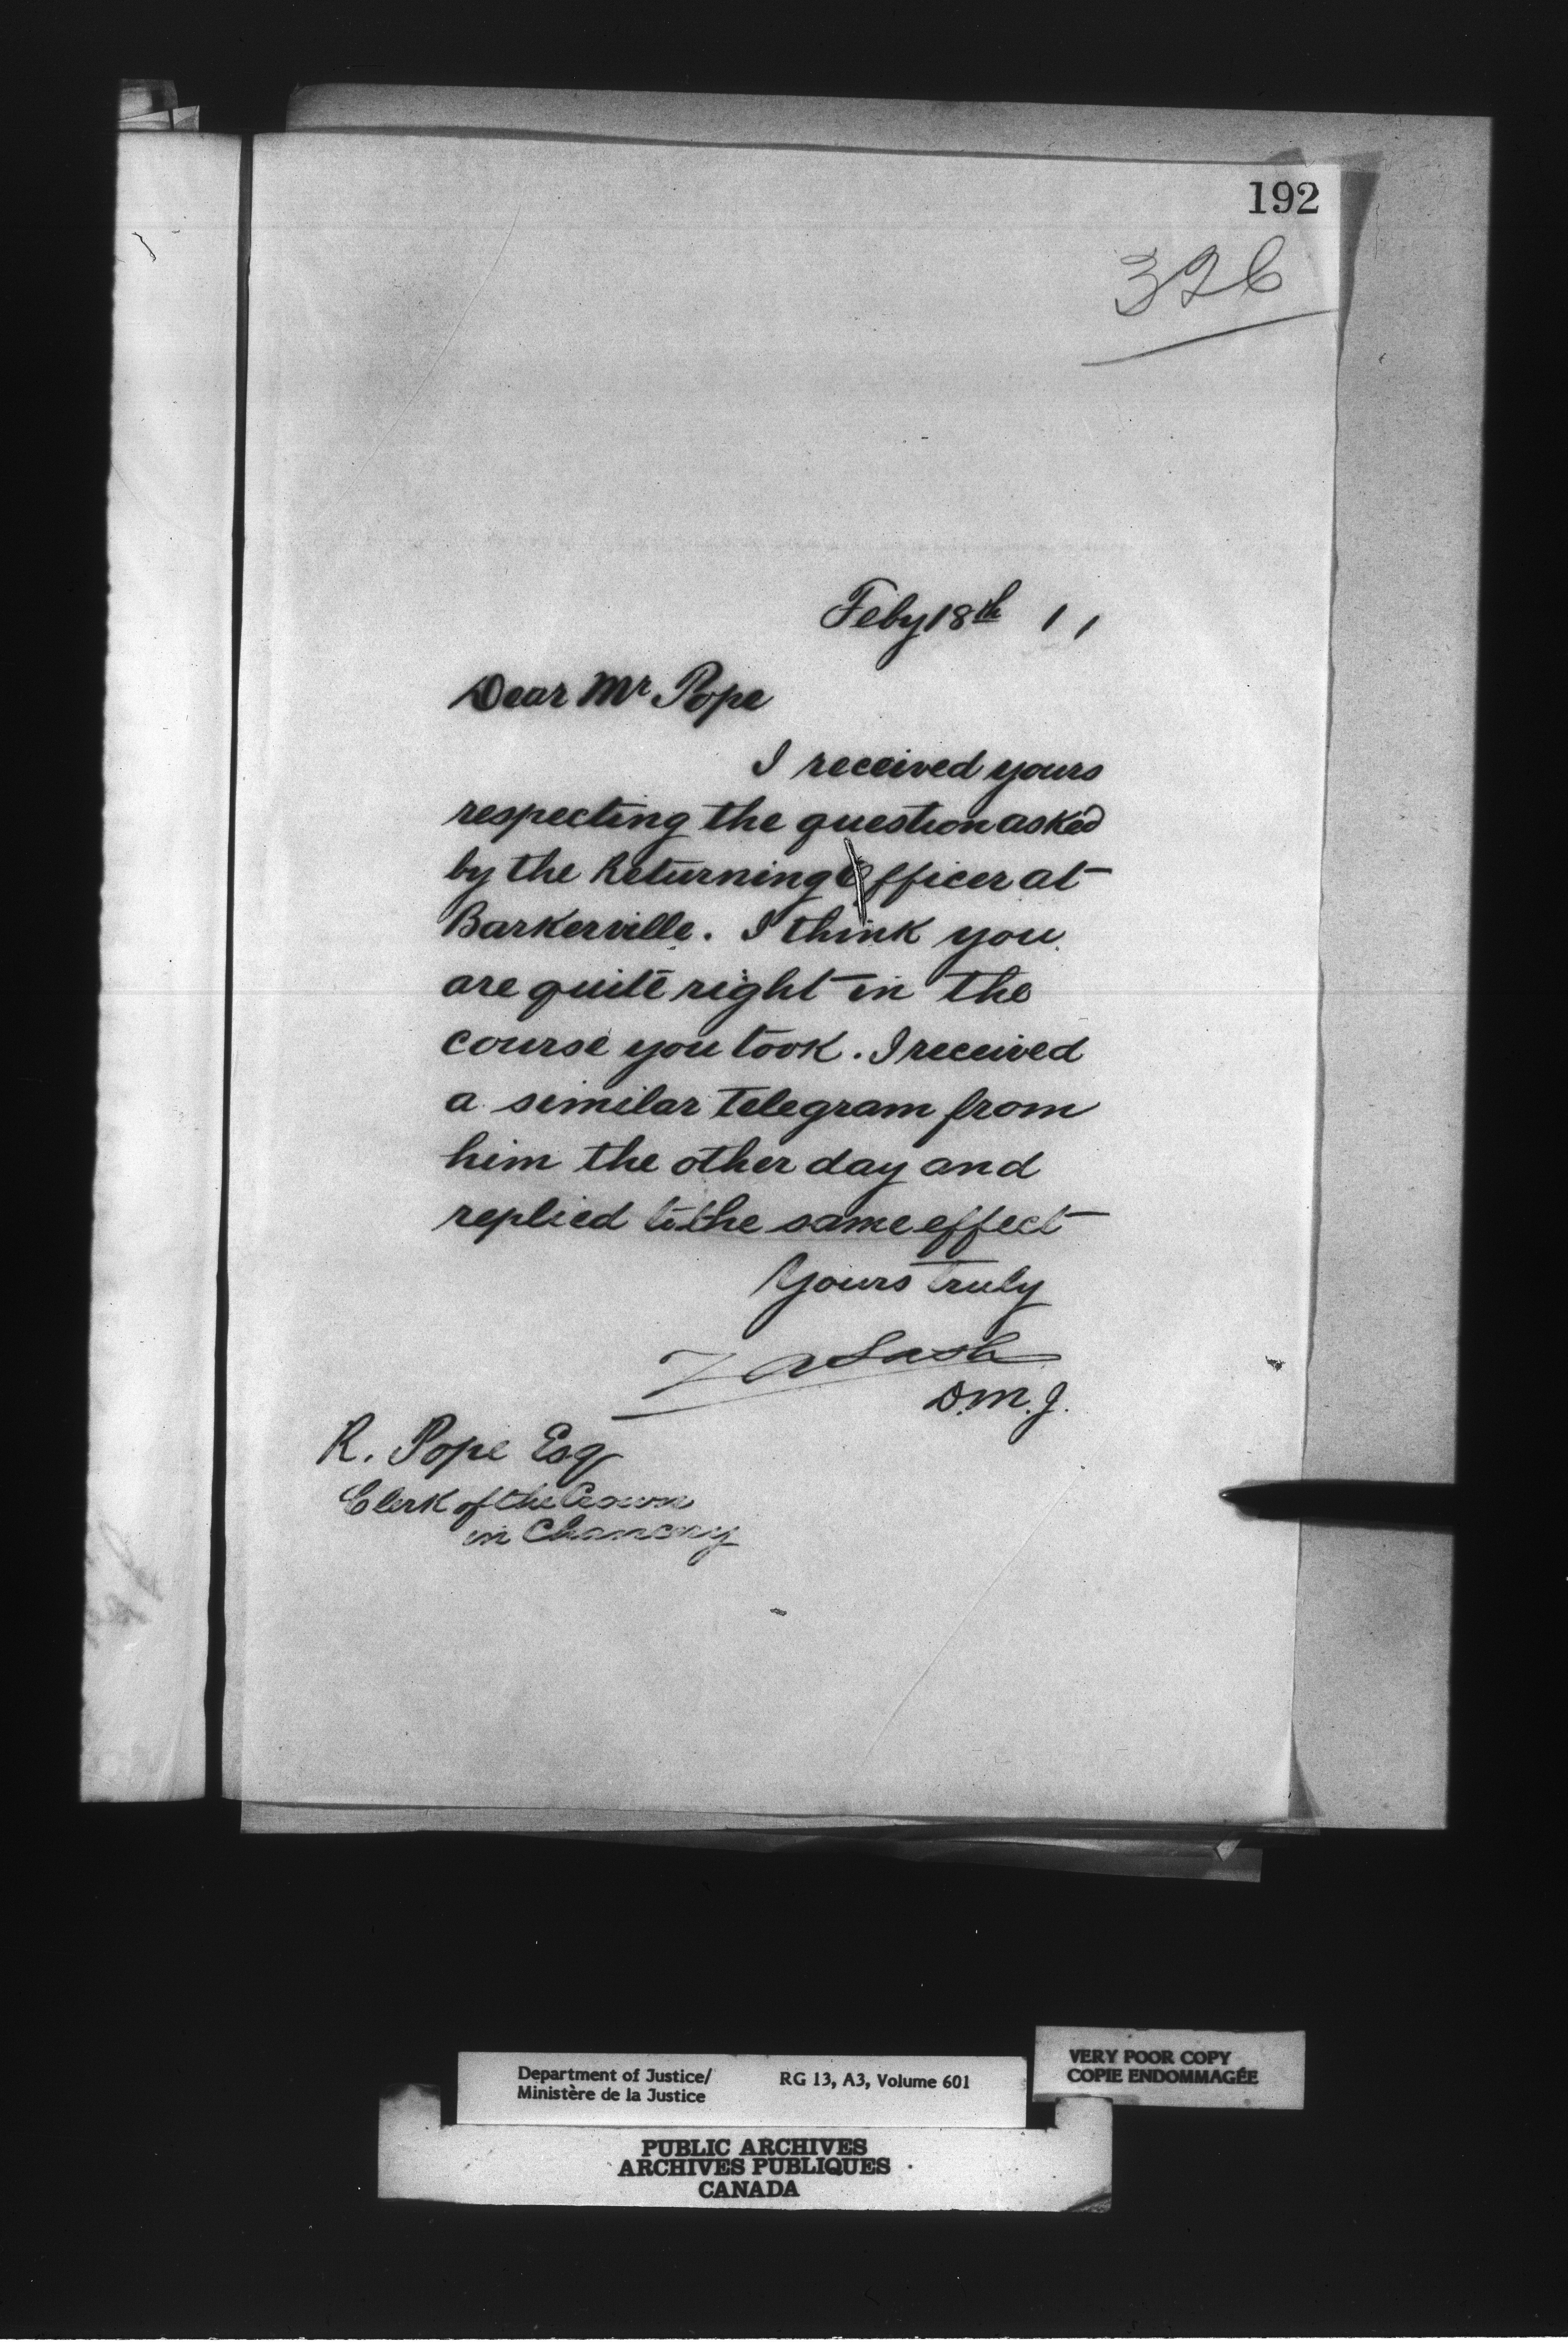 192
326
Feby 18th 11
Dear Mr Pope
I received yours
respecting the question asked
by the Returning Officer at
Barkerville. I think you
are quite right in the
course you took. I received
a similar telegram from
him the other day and
replied to the same effect
Yours truly
Z A Lash
D.M.J.
R. Pope Esq
Clerk of the Crown
in Chancery
Department of Justice/
Ministère de la Justice
RG 13, A3, Volume 601
VERY POOR COPY
COPIE ENDOMMAGÉE
PUBLIC ARCHIVES
ARCHIVES PUBLIQUES
CANADA